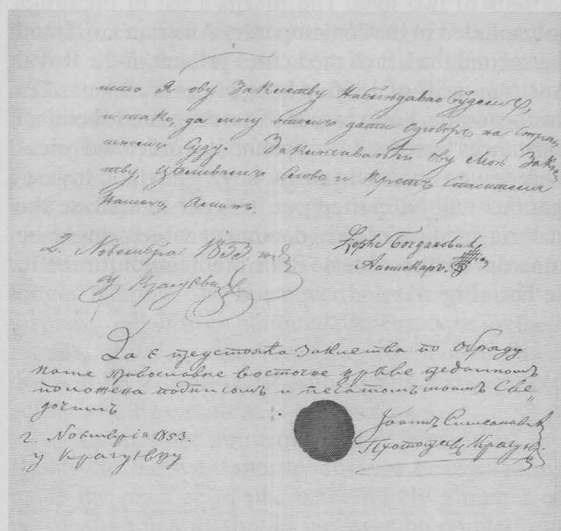 што я ову заклетву набљюдавао будемъ,
и тако, да могу отомъ дати одговоръ на страш
номъ суду. Заключавамъ ову мою закле
тву цѣливамъ слова и крестъ спаситеља
нашегъ Аминь
2. Новембра 1853 год
у Крагуевцу
Ђорђе Богдановић
Апотекаръ
Да е предстояћа заклетва по обряду
наше православне восточне цркве
положена подписомъ и печатомъ моимъ све
дочимъ
2. Новемврія 1853.
у Крагуевцу
Іоаннъ Симеоновић
Протоерей Крагуев.